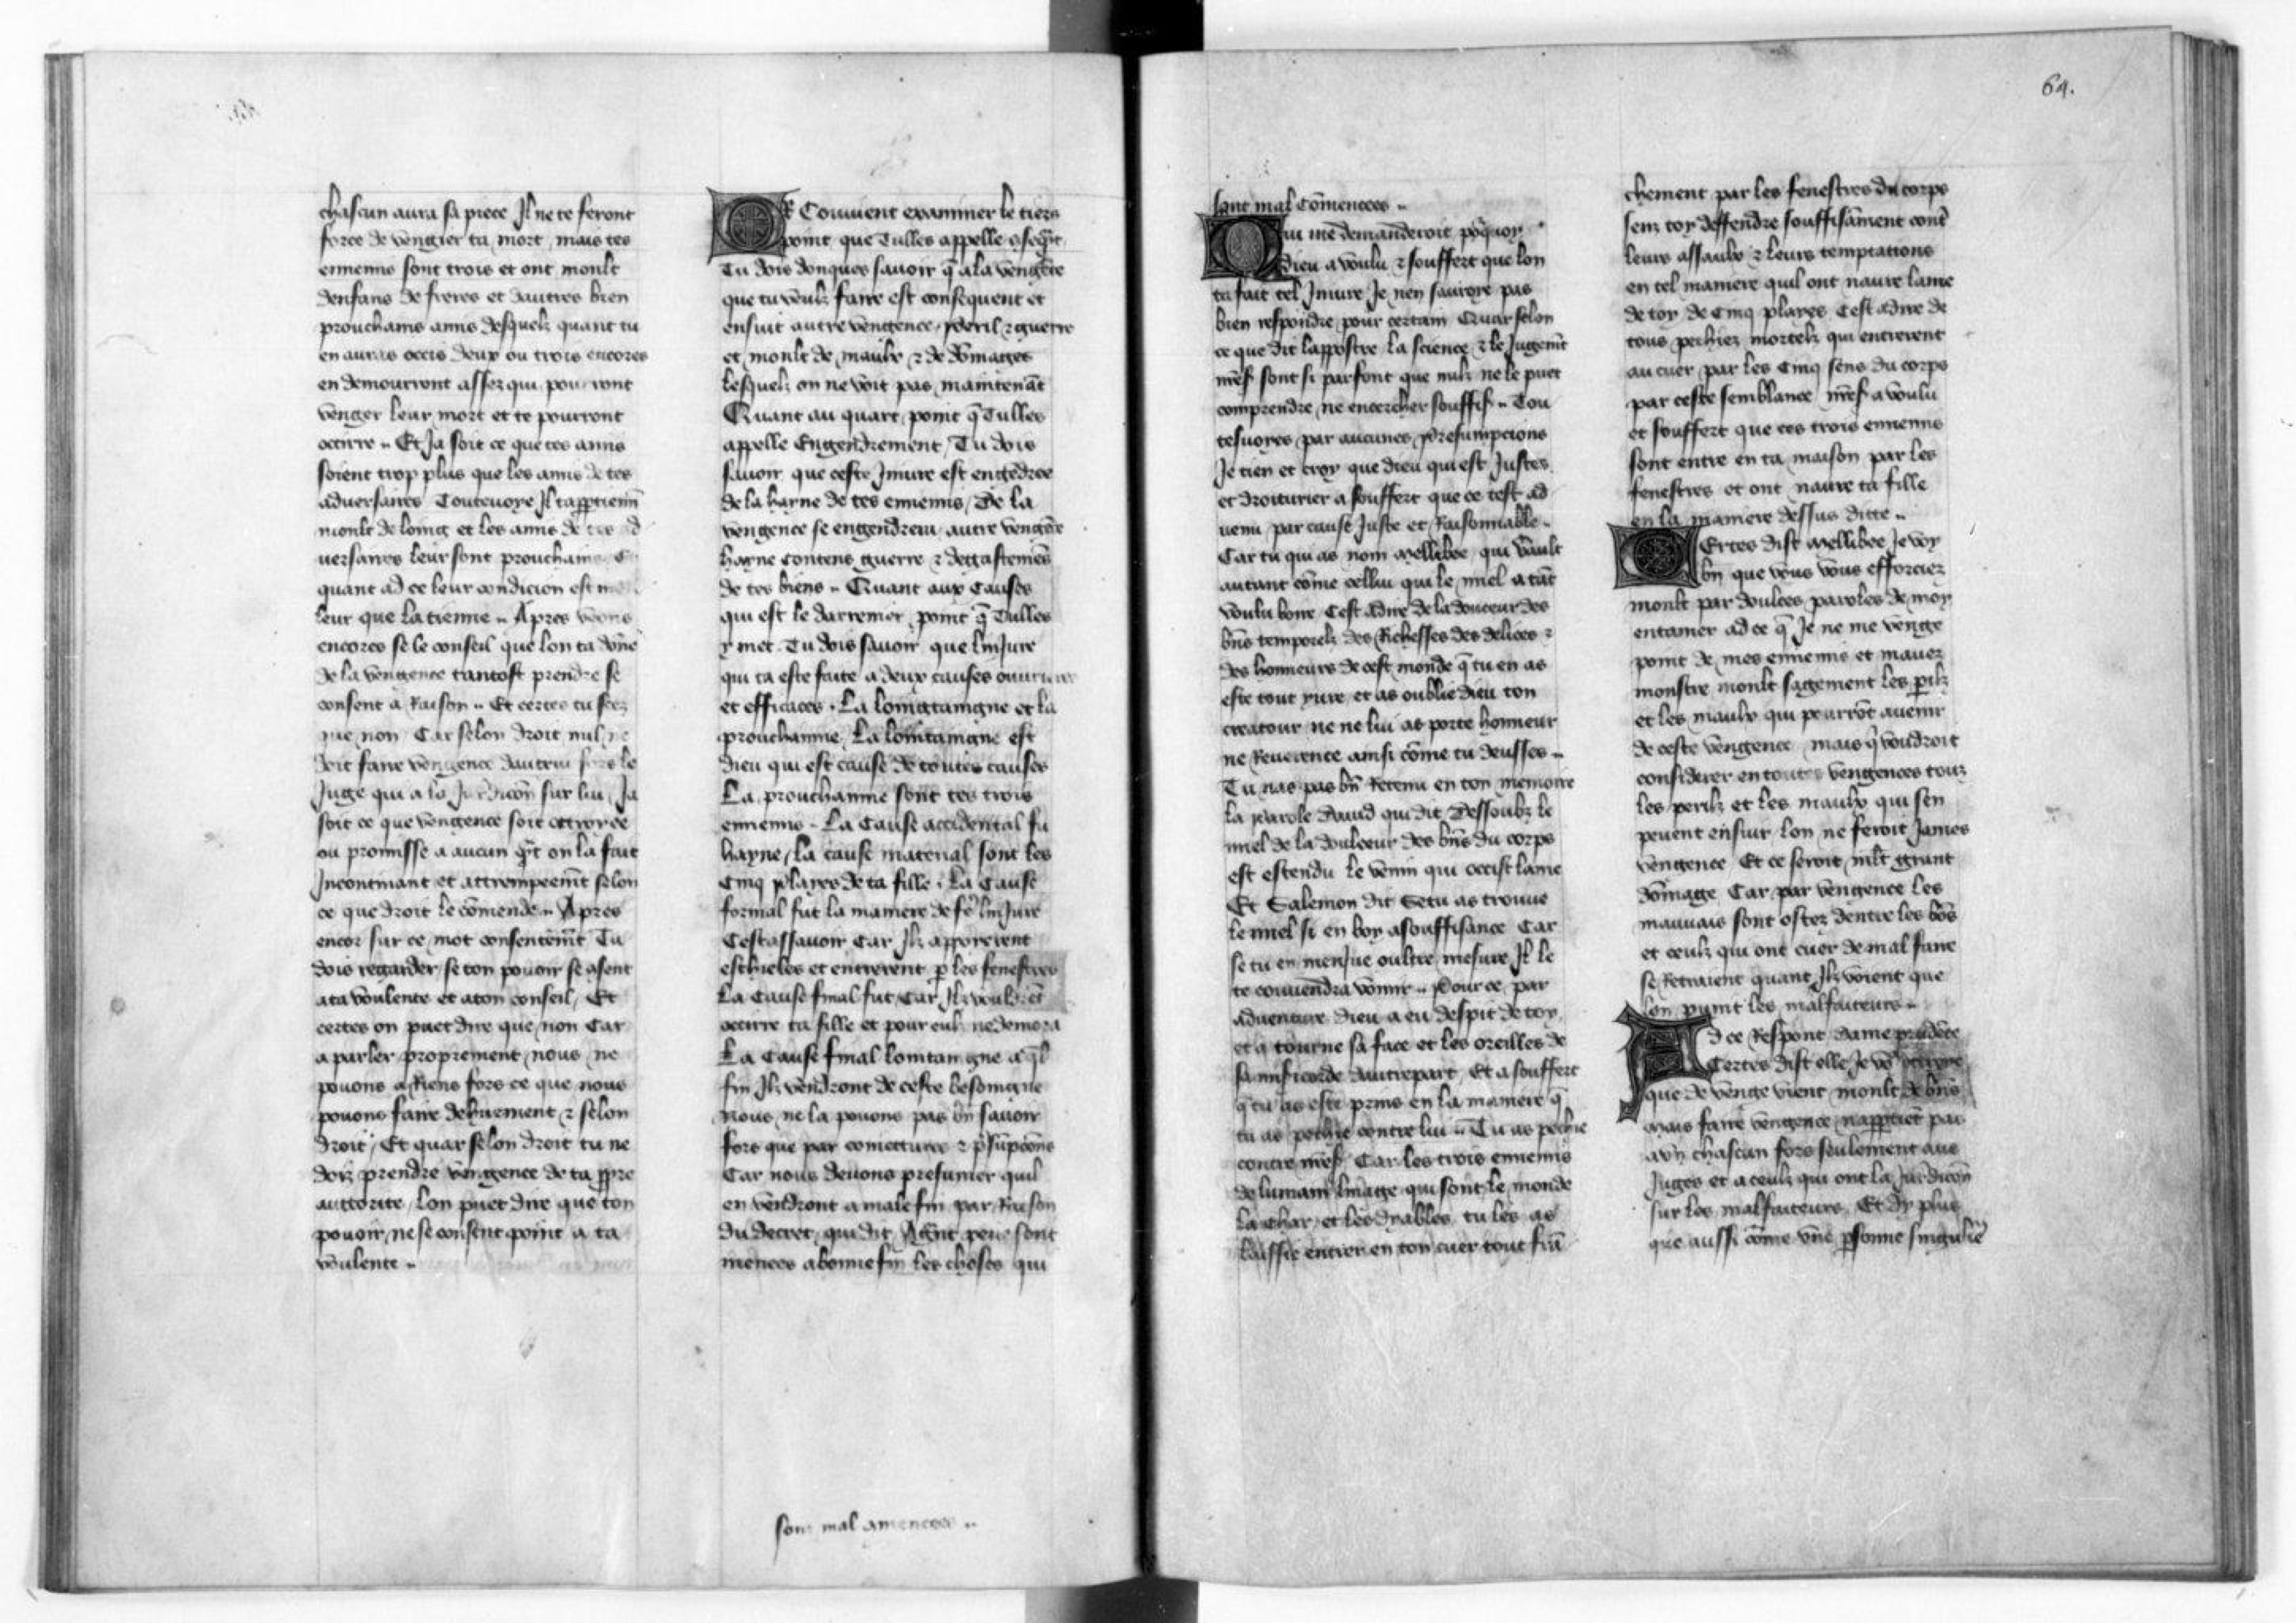 64.
chascun aura sa piece Il ne te feront
force de vengier ta mort mais tes
ennemis sont trois et ont moult
denfans de freres et dautres bien
prouchains amis desquelz quant tu
en auras occis deux ou trois encores
en demourront assez qui pourront
venger leur mort et te pourront
occirre .. Et Ja soit ce que tes amis
soient trop plus que les amis de tes
adversaires Toutevoye Il tappartienn̄
moult de loing et les amis de tes ad
versaires leur sont prouchains Et
quant ad ce leur condicion est meil
leur que la tienne .. Apres voions
encores se le conseil que lon ta dōne
de la vengence tantost prendre se
consent a Raison .. Et certes tu scez
que non Car selon droit nul ne
doit faire vengence dautrui fors le
Juge qui a la Jurdicōn sur lui Ja
soit ce que vengence soit ottroyee
ou promisse a aucun qn̄t on la fait
Incontinant et attrempeemt̄ selon
ce que droit le cōmende .. Apres
encor sur ce mot consentemt̄ Tu
dois regarder se ton pouoir se asent
a ta voulente et a ton conseil Et
certes on puet dire que non Car
a parler proprement nous ne
pouons a Riens fors ce que nous
pouons faire dehuement ⁊ selon
droit Et quar selon droit tu ne
doiz prendre vengence de ta ppre
auttorite lon puet dire que ton
pouoir ne se consent point a ta
voulente ..
OR Convient examiner le tiers
point que Tulles appelle cōseqt̄
Tu dois donques savoir q̄ a la vengēce
que tu veulz faire est consequent et
ensuit autre vengence peril ⁊ guerre
et moult de maulx ⁊ de dōmages
lesquelz on ne voit pas maintenāt
Quant au quart point q̄ Tulles
appelle Engendrement Tu dois
savoir que ceste Iniure est engēdree
de la hayne de tes ennemis De la
vengence se engendrera autre vengēce
hayne contens guerre ⁊ degastemēs
de tes biens .. Quant aux Causes
qui est le darremer point q̄ Tulles
y met Tu dois savoir que linJure
qui ta este faite a deux causes ouurieres
et efficaces . La loingtaingne et la
prouchainne La loingtaingne est
dieu qui est cause de toutes causes
La prouchainne sont tes trois
ennemis . La Cause accidental fu
hayne La cause material sont les
Cinq playes de ta fille . La Cause
formal fut la maniere de fe linJure
Cestassavoir Car Ilz apporterent
eschieles et entrerent p les fenestres
La Cause final fut Car Ilz vouldrēt
occirre ta fille et pour eulz ne demora
La Cause final lointaingne a ql̄
fin Ilz vendront de ceste besoingne
Nous ne la pouons pas bn̄ savoir
fors que par coniectures ⁊ p̄sūpcōns
Car nous deuons presumer quil
en vendront a male fin par Raison
du decret qui dit A grāt pene sont
menees a bonne fin les choses qui
sont mal cōmencees ..
sont mal Cōmencees ..
Qui me demanderoit pōrquoy
Dieu a voulu ⁊ souffert que lon
ta fait tel Iniure Je nen sauroye pas
bien respōdre pour certain Quar selon
ce que dit lappostre la science ⁊ le Jugemt̄
nr̄es sont si parfont que nulz ne le puet
comprendre ne encercher souffis .. Tou
tesuoyes par aucunes presumpcions
Je tien et croy que dieu qui est Justes
et droiturier a souffert que ce test ad
uenu par cause Juste et Raisonnable ..
Car tu qui as nom Mellibee qui vault
autant cōme cellui qui le miel a tāt
voulu boire Cest adire de la douceur des
bn̄s temporelz des Richesses des delices ⁊
des honneurs de cest monde q̄ tu en as
este tout yure et as oublie dieu ton
creatour ne ne lui as porte honneur
ne Reuerence ainsi cōme tu deusses ..
Tu nas pas bn̄ Retenu en ton memoire
la parole Dauid qui dit Dessoubz le
miel de la doulceur des bn̄s du corps
est estendu le venin qui occist lame
Et Salemon dit Se tu as trouue
le miel si en boy a souffisance Car
se tu en menJue oultre mesure Il le
te conuendra vomir .. Pour ce par
aduenture dieu a eu despit de toy
et a tourne sa face et les oreilles de
sa misīcorde dautrepart Et a souffert
q̄ tu as este prins en la maniere q̄
tu as pechie contre lui .. Tu as pechie
contre nr̄es Car les trois ennemis
de lumain linage qui sont le monde
la char et les dyables tu les as
laissie entrer en ton cuer tout frā
chement par les fenestres du corps
senz toy deffendre souffisāment contē
leurs assaulx ⁊ leurs temptations
en tel maniere quil ont naure lame
de toy de Cinq playes Cest adire de
tous pechiez mortelz qui entrerent
au cuer par les Cinq sens du corps
par ceste semblance nr̄es a voulu
et souffert que tes trois ennemis
sont entre en ta maison par les
fenestres et ont naure ta fille
en la maniere dessus dicte ..
Certes dist Mellibee Je voy
bn̄ que vous vous efforciez
moult par doulces paroles de moy
entamer ad ce q̄ Je ne me venge
point de mes ennemis et mauez
monstre moult sagement les pilz
et les maulx qui pourrōt auenir
de ceste vengence mais q̄ voudroit
considerer en toutes vengences touz
les perilz et les maulx qui sen
peuent ensuir lon ne feroit James
vengence Et ce seroit mlt̄ grant
dōmage Car par vengence les
mauuais sont ostez dentre les bōs
et ceulz qui ont cuer de mal faire
se Retraient quant Ilz voient que
lon punit les malfaiteurs ..
Ad ce Respont dame prudēce
Certes dist elle Je vo ottroye
que de venge vient moult de bn̄s
Mais faire vengence nappartiēt pas
a vn chascun fors seulement aus
Juges et a ceulz qui ont la Jurdicōn
sur les malfaiteurs Et dy plus
que aussi cōme vne psonne singuliē